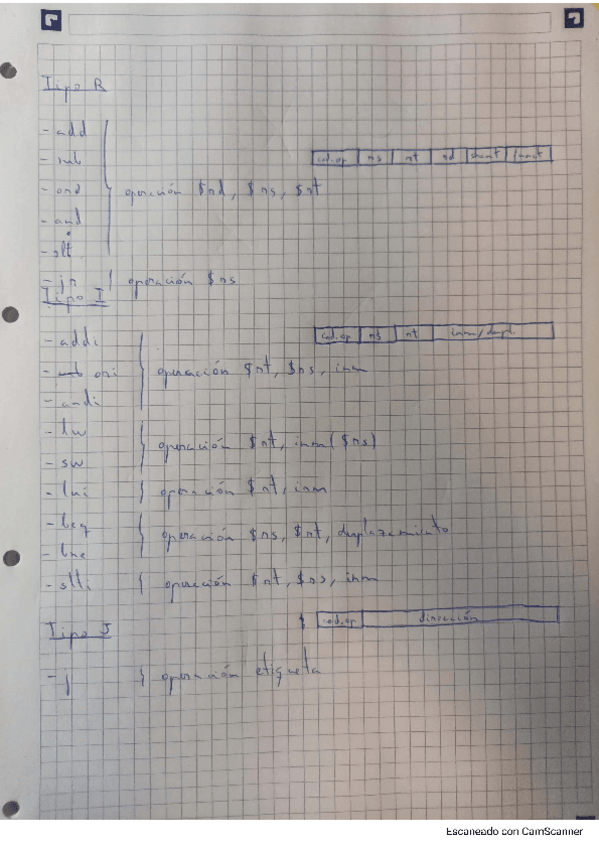 Tipo R
- add
- sub
cod.op rs rt rd shamt funct
- ord
operación $rd, $rs, $rt
- and
- slt
- jr operación $rs
Tipo I
- addi
cod.op rs rt inm/despl.
- sub ori operación $rt, $rs, inm
- andi
- lw
operación $rt, inm($rs)
- sw
- lui operación $rt, inm
- beq
operación $rs, $rt, desplazamiento
- bne
- slti operación $rt, $rs, inm
cod.op dirección
Tipo J
- j operación etiqueta
Escaneado con CamScanner